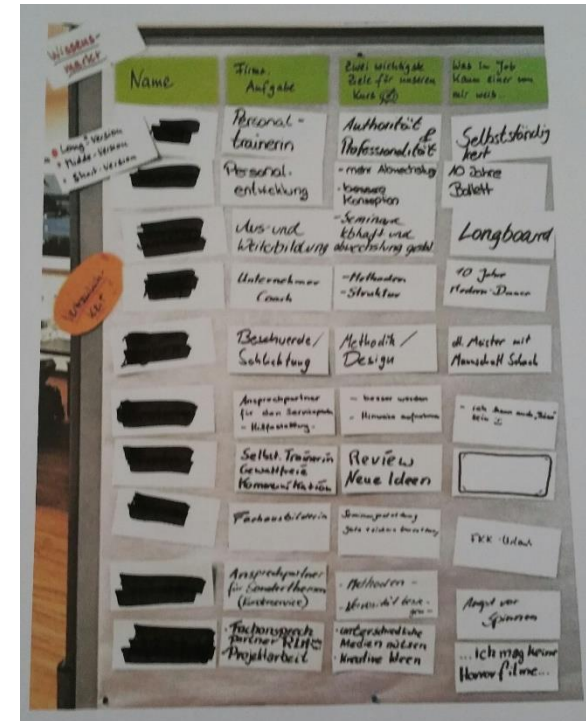 Wissens-
markt
Name
Firma,
Aufgabe
Zwei wichtigste
Ziele für unseren
Kurs
Was im Job
kaum einer von
mir weiß...
Long-Version
Middle-Version
Short-Version
Personal-
trainerin
Authorität &
Professionalität
Selbstständig
keit
Personal-
entwicklung
- mehr Abwechslung
-
Konzeption
10 Jahre
Ballett
Aus- und
Weiterbildung
- Seminare
lebhaft und
abwechslung
Longboard
Unternehmer
Coach
- Methoden
- Struktur
10 Jahre
Modern-Dance
Beschwerde/
Schlichtung
Methodik /
Design
dt. Meister mit
Mannschaft Schach
Ansprechpartner
für den
- Hilfestellung.
- besser werden
- Hinweise aufnehmen
- ich kann auch
sein
Selbst. Trainerin
Gewaltfreie
Kommunikation
Review
Neue Ideen
Fachausbilderin
FKK-Urlaub
Ansprechpartner
für Sonderthemen
- Methoden -
- Nervosität
Angst vor
Spinnen
· Fachansprech
partner
Projektarbeit
· unterschiedliche
Medien nützen
· Kreative Ideen
... ich mag keine
Horrorfilme...